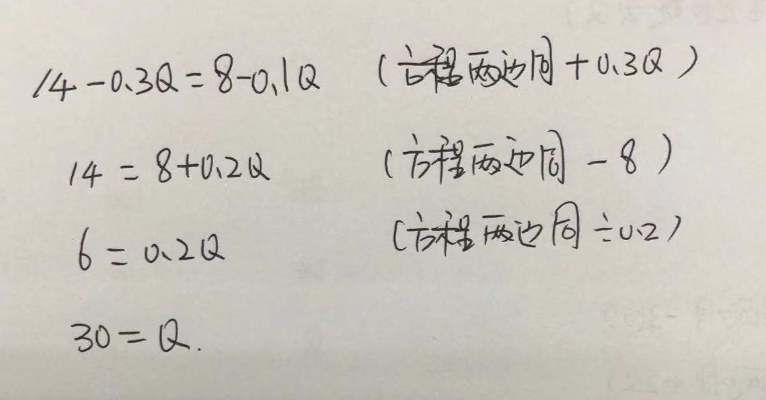 14-0.3Q=8-0.1Q (方程两边同+0.3Q)
14=8+0.2Q (方程两边同-8)
6=0.2Q (方程两边同÷0.2)
30=Q.